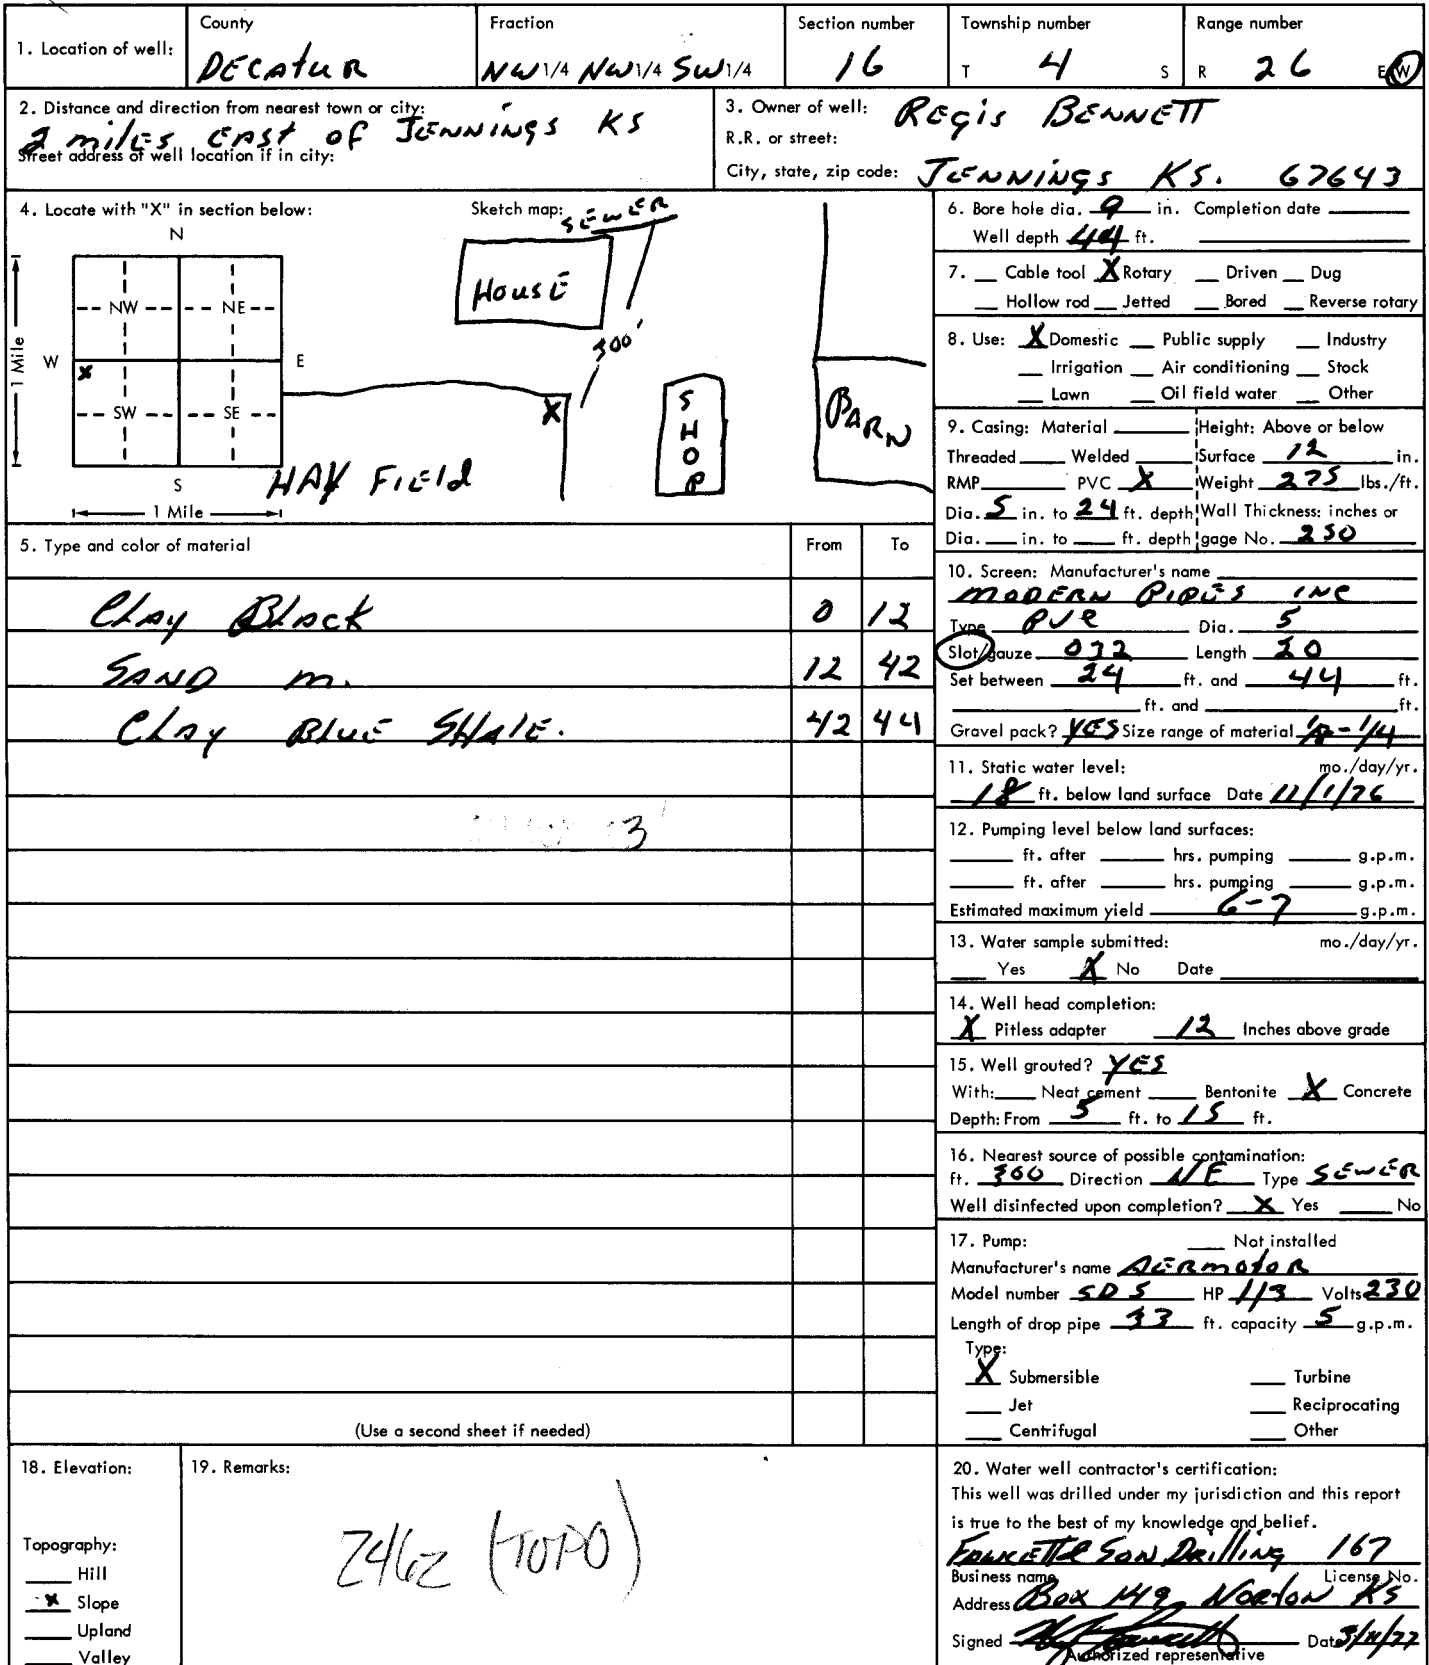 County Fraction Section number Township number Range number
1. Location of well: DECATUR NW 1/4 NW 1/4 SW 1/4 16 T 4 S R 26 E W
2. Distance and direction from nearest town or city:
2 miles EAST of JENNINGS KS
Street address of well location if in city:
3. Owner of well: REGIS BENNETT
R.R. or street:
City, state, zip code: JENNINGS KS. 67643
4. Locate with "X" in section below:
N
NW NE
W E
X
SW SE
S
1 Mile
1 Mile
Sketch map:
SEWER
HOUSE
300'
X
SHOP
BARN
HAY FIELD
5. Type and color of material From To
Clay Black 0 12
SAND m. 12 42
Clay BLUE SHALE. 42 44
3'
(Use a second sheet if needed)
6. Bore hole dia. 9 in. Completion date
Well depth 44 ft.
7. Cable tool X Rotary Driven Dug
Hollow rod Jetted Bored Reverse rotary
8. Use: X Domestic Public supply Industry
Irrigation Air conditioning Stock
Lawn Oil field water Other
9. Casing: Material Height: Above or below
Threaded Welded Surface 12 in.
RMP PVC X Weight 275 lbs./ft.
Dia. 5 in. to 24 ft. depth Wall Thickness: inches or
Dia. in. to ft. depth gage No. 250
10. Screen: Manufacturer's name
MODERN PIPES INC
Type PVC Dia. 5
Slot/gauze 032 Length 20
Set between 24 ft. and 44 ft.
ft. and ft.
Gravel pack? YES Size range of material 1/8 - 1/4
11. Static water level: mo./day/yr.
18 ft. below land surface Date 11/1/76
12. Pumping level below land surfaces:
ft. after hrs. pumping g.p.m.
ft. after hrs. pumping g.p.m.
Estimated maximum yield 6-7 g.p.m.
13. Water sample submitted: mo./day/yr.
Yes X No Date
14. Well head completion:
X Pitless adapter 12 Inches above grade
15. Well grouted? YES
With: Neat cement Bentonite X Concrete
Depth: From 5 ft. to 15 ft.
16. Nearest source of possible contamination:
ft. 300 Direction NE Type SEWER
Well disinfected upon completion? X Yes No
17. Pump: Not installed
Manufacturer's name AERMOTOR
Model number SD5 HP 1/3 Volts 230
Length of drop pipe 33 ft. capacity 5 g.p.m.
Type:
X Submersible Turbine
Jet Reciprocating
Centrifugal Other
18. Elevation:
Topography:
Hill
X Slope
Upland
Valley
19. Remarks:
2462 (TOPO)
20. Water well contractor's certification:
This well was drilled under my jurisdiction and this report
is true to the best of my knowledge and belief.
FAWCETT & SON DRilling 167
Business name License No.
Address BOX 149 NORTON KS
Signed Date
Authorized representative